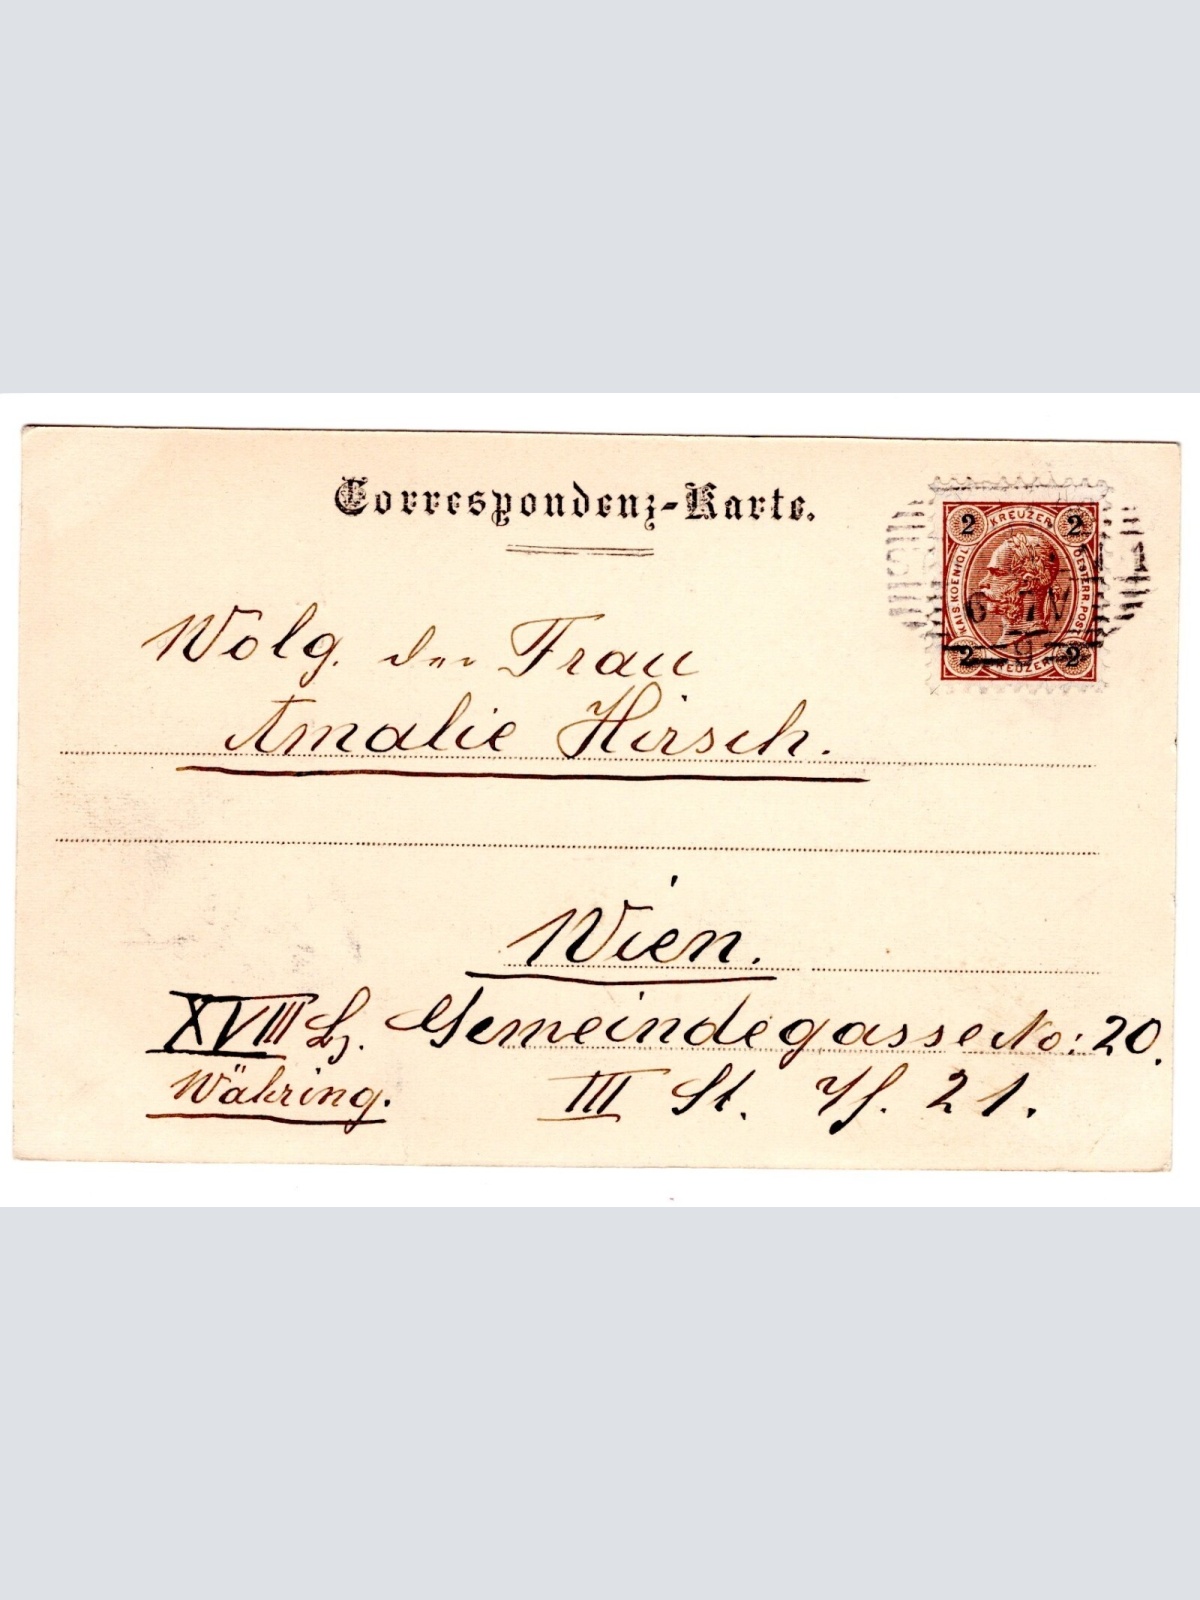 Correspondenz-Karte.
2 KREUZER 2
KAIS. KOENIGL. OESTERR. POST
2 KREUZER 2
6 7 N
9
Wolg. der Frau
Amalie Hirsch.
Wien.
XVIII Bz. Gemeindegasse No: 20.
Währing. III St. Th. 21.